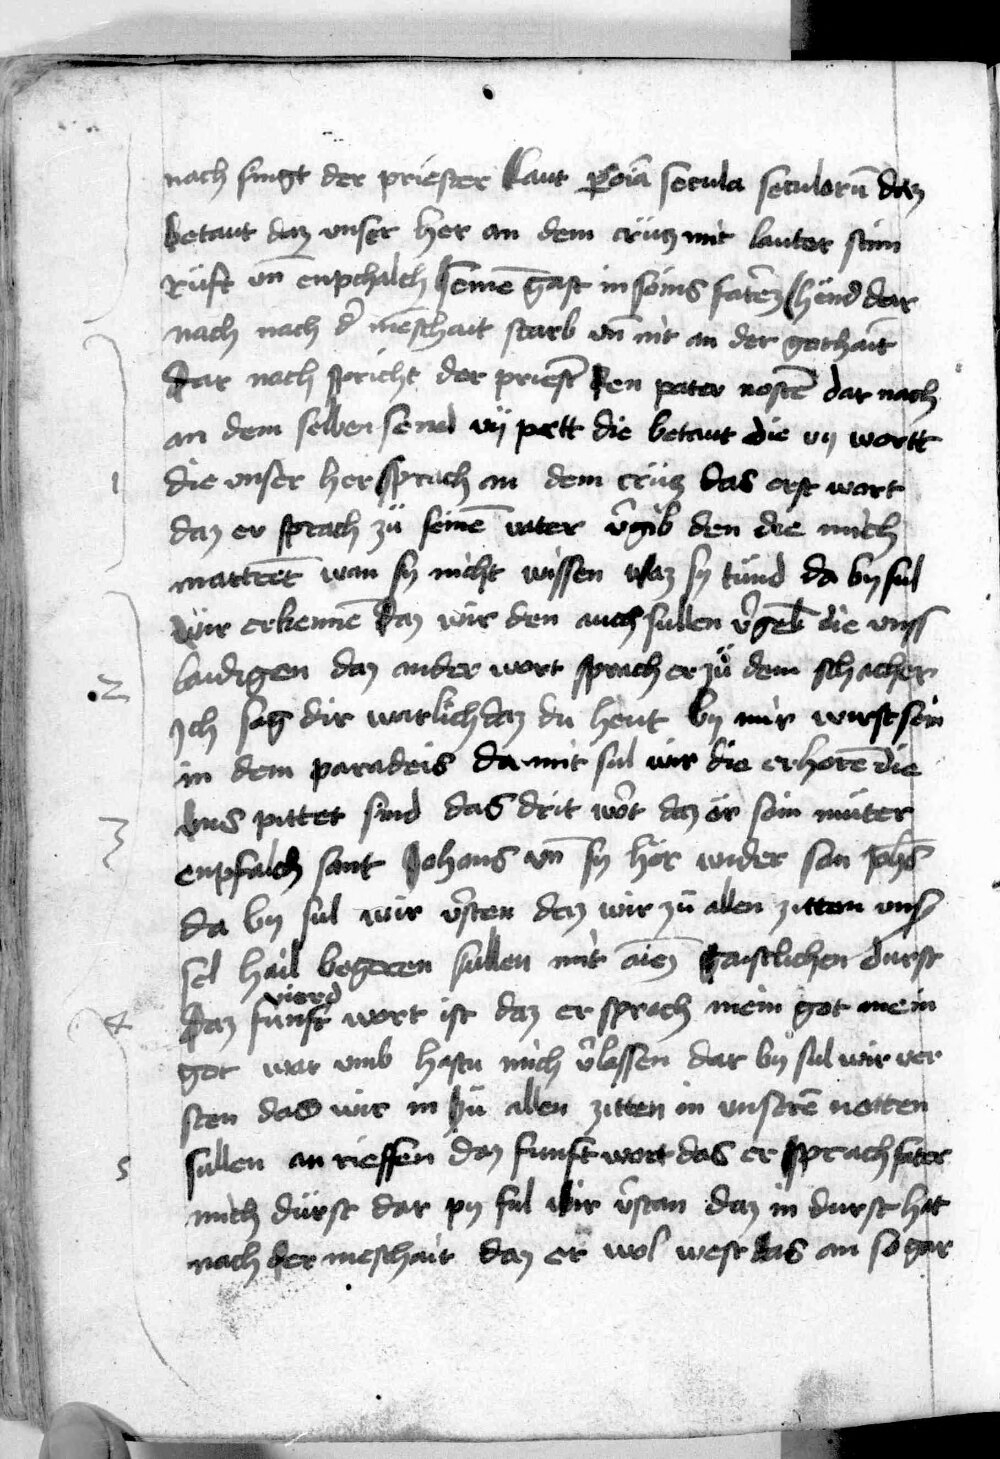 nach singt der priester laut P oīa secula seculorū daz
betaut daz vnser her an dem crütz mit lauter stim
Rüft vn̄ enpchalch seinē gast in seins faterz hend dar
nach nach d' mēschait starb vn̄ nit an der gothait
Dar nach spricht der priest' den pater nostē dar nach
an dem selben send vij pett die betaut die vij wortt
die vnser her sprach an dem crütz das erst wort
daz er sprach zü seinē vater v'gib den die mich
martrēt wan sy nicht wissen waz sy tünd da by sul
wir erkennē daz wir den auch sullen v'gebē die vnss
laidigen daz ander wort sprach er zü dem schacher
Ich sag dir warlich daz du heut by mir wirst sein
in dem paradeis da mit sul wir die erhorē die
vns pittet sind das drit wort daz er sein müter
enpfalch sant Johans vn̄ sy her wider san Johs̄
da by sul wir v'sten daz wir zü allen zitten vns'
sel hail begeren sullen mit aiē gaistlichen durst
vierd
Daz funft wort ist daz er sprach mein got mein
got war vmb hastu mich v'lassen dar by sul wir ver
sten das wir in zü allen zitten in vnserē notten
sullen an rieffen daz funft wort das er sprach fater
mich dürst dar py sul wir v'stan daz in durst hat
nach der meschait daz er wol west das an so gar
1
2
3
4
5